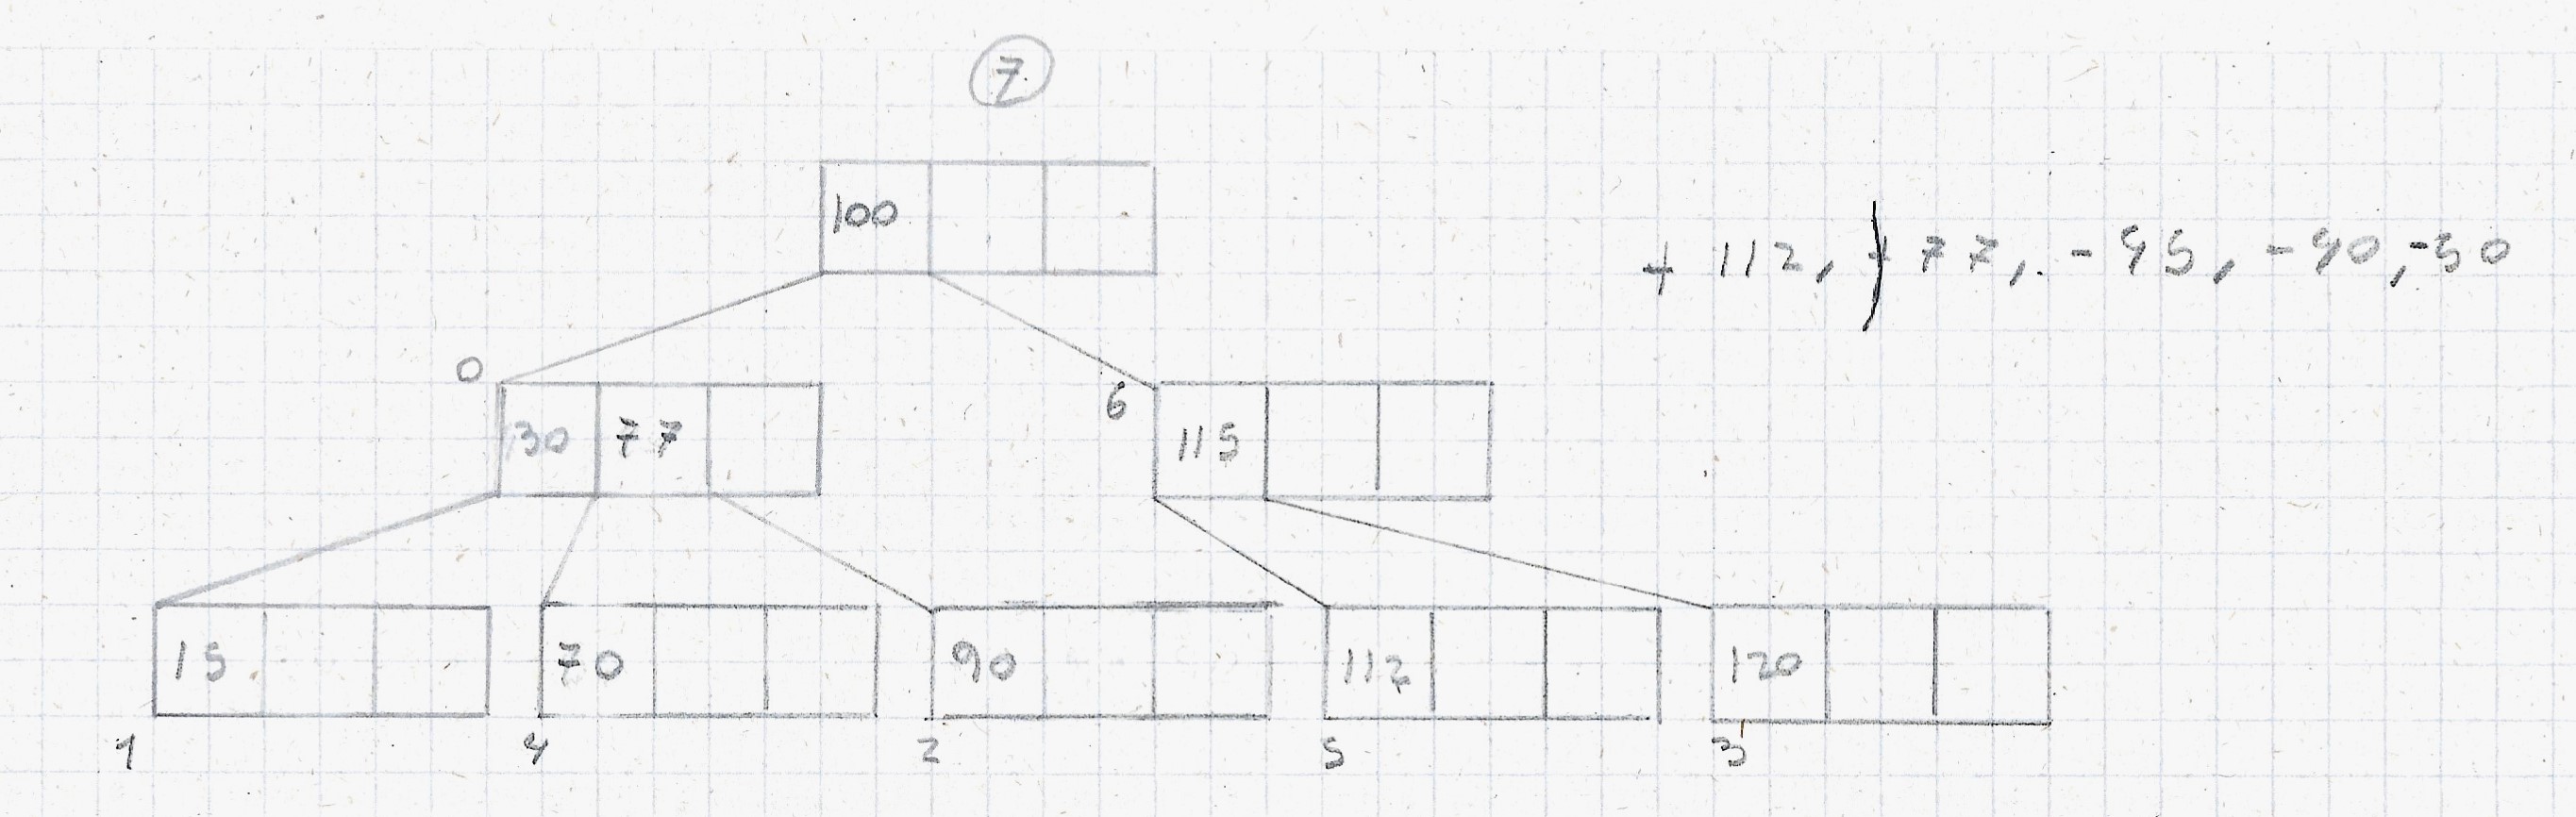 7
100
+ 112, + 77, - 45, - 40, -50
0
6
30 77
115
15 70 90 112 120
1 4 2 5 3